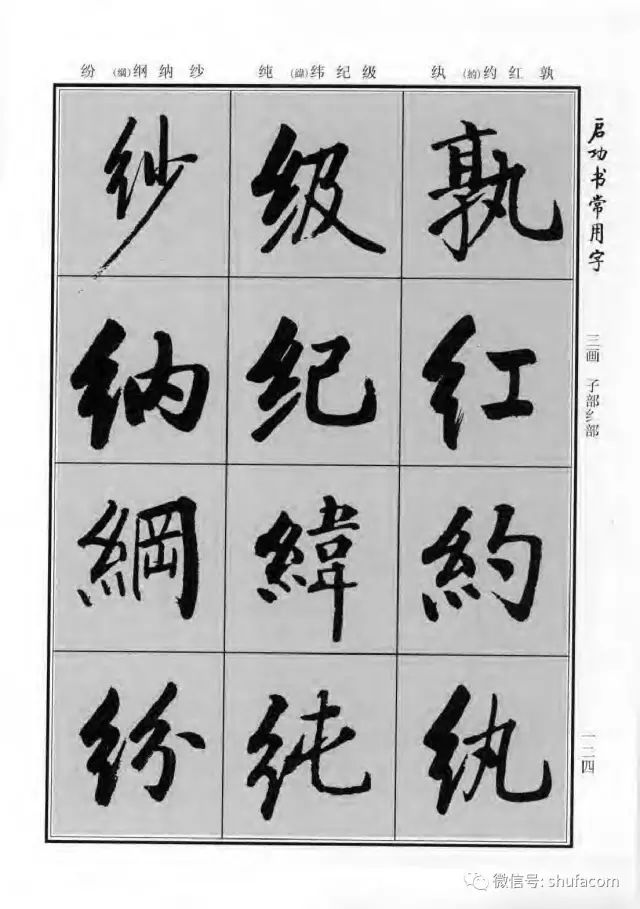 启功书常用字
三画 子部纟部
一二四
孰红约(約)纨
级纪纬(緯)纯
纱纳纲(綱)纷
孰
红
約
纨
级
纪
緯
纯
纱
纳
綱
纷
微信号: shufacom